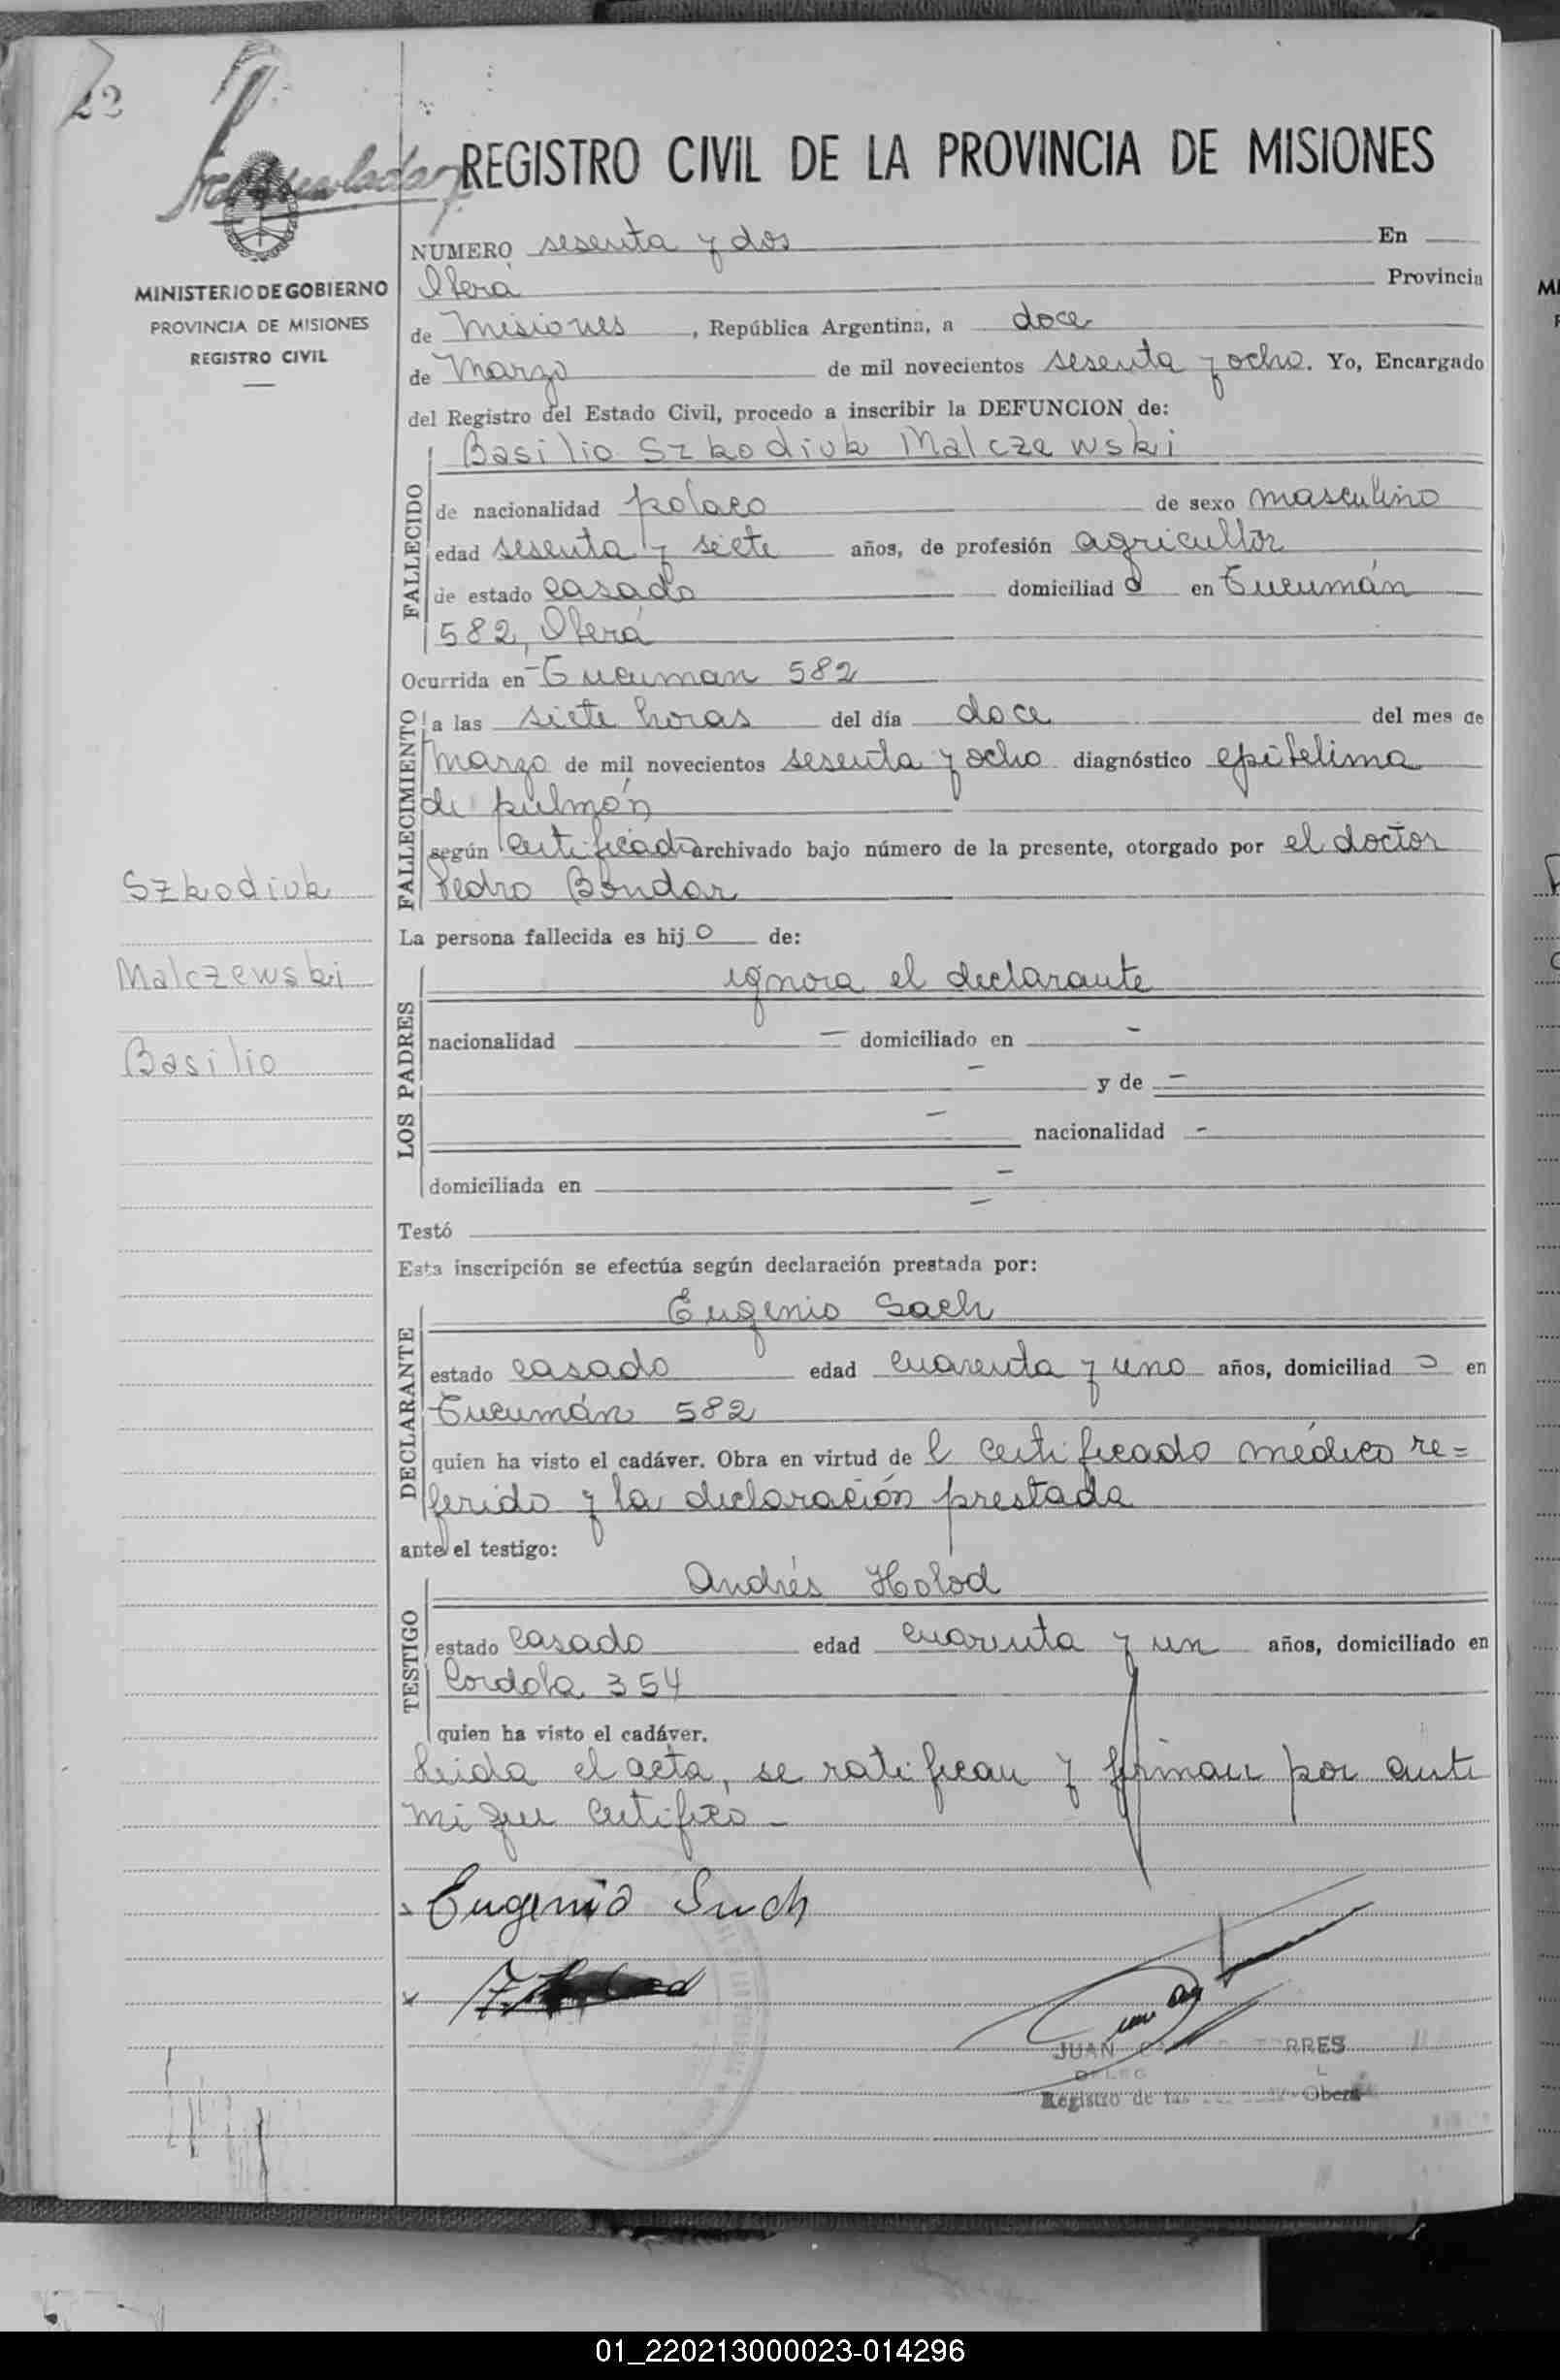 22
REGISTRO CIVIL DE LA PROVINCIA DE MISIONES
MINISTERIO DE GOBIERNO
PROVINCIA DE MISIONES
REGISTRO CIVIL
NUMERO sesenta y dos En
Oberá Provincia
de Misiones, República Argentina, a doce
de Marzo de mil novecientos sesenta y ocho. Yo, Encargado
del Registro del Estado Civil, procedo a inscribir la DEFUNCION de:
Basilio Szkodiuk Malczewski
FALLECIDO
de nacionalidad polaco de sexo masculino
edad sesenta y siete años, de profesión agricultor
de estado casado domiciliad o en Tucumán
582, Oberá
Ocurrida en Tucuman 582
FALLECIMIENTO
a las siete horas del día doce del mes de
Marzo de mil novecientos sesenta y ocho diagnóstico epitelima
de pulmón
según certificado archivado bajo número de la presente, otorgado por el doctor
Pedro Bondar
Szkodiuk
Malczewski
Basilio
La persona fallecida es hij o de:
LOS PADRES
ignora el declarante
nacionalidad — domiciliado en -
- y de -
- nacionalidad -
domiciliada en -
Testó -
Esta inscripción se efectúa según declaración prestada por:
DECLARANTE
Eugenio Sach
estado casado edad cuarenta y uno años, domiciliad o en
Tucumán 582
quien ha visto el cadáver. Obra en virtud de l certificado médico re=
ferido y la declaración prestada
ante el testigo:
TESTIGO
Andrés Holod
estado casado edad cuarenta y un años, domiciliado en
Cordoba 354
quien ha visto el cadáver.
Leida el acta, se ratifican y firman por ante
mi que certifico -
Eugenio Such
JUAN TORRES
Registro de las Oberá
01_220213000023-014296